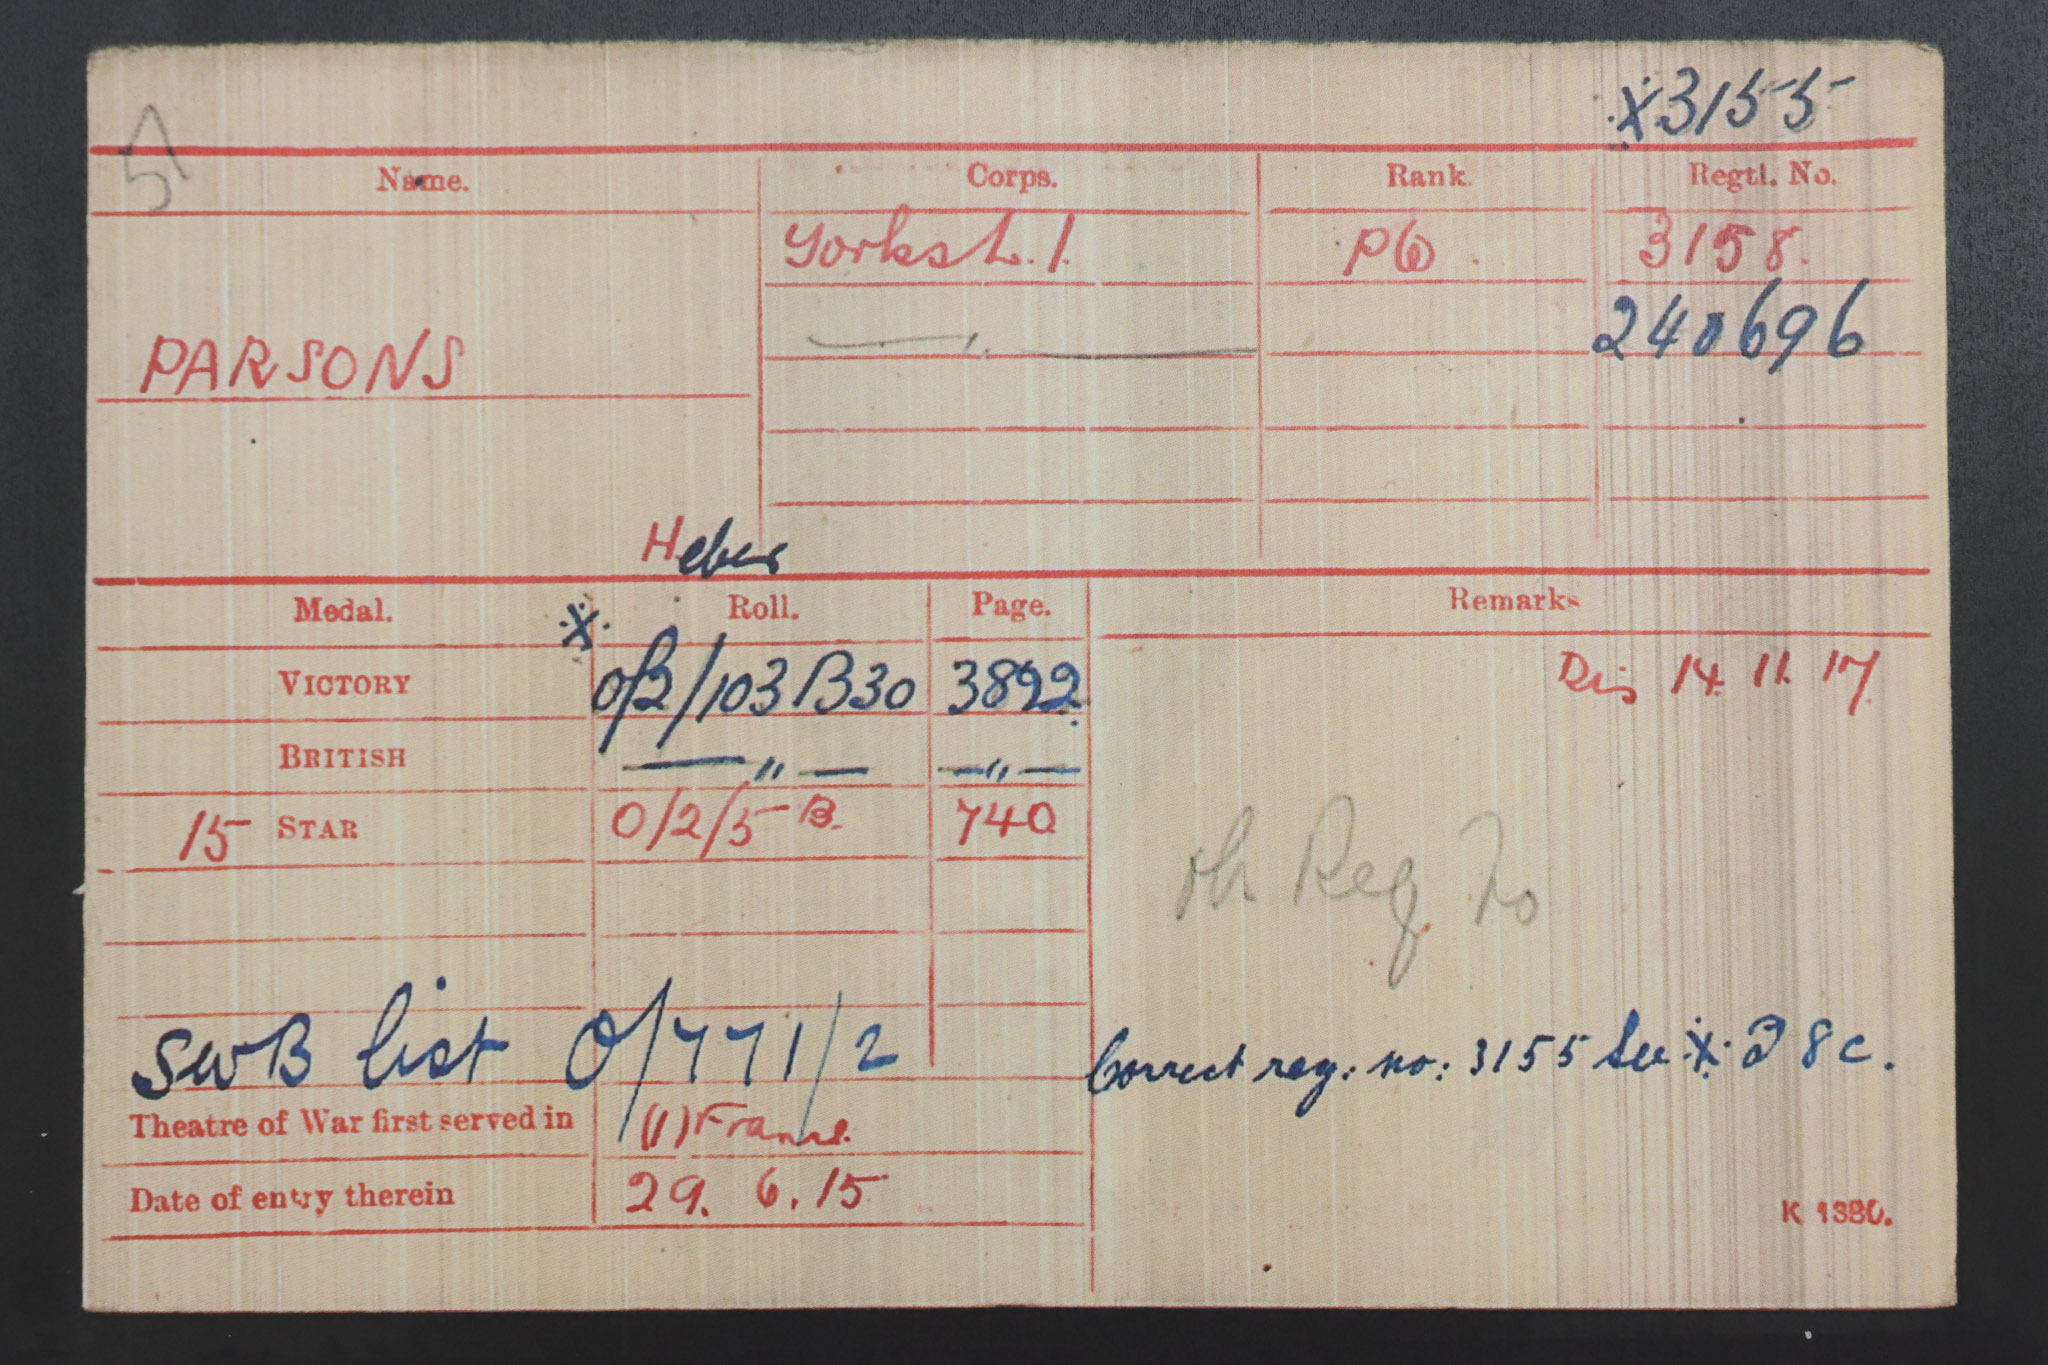 X 3155
Name. Corps. Rank. Regtl. No.
Yorks L.I. Pte 3158.
— " — 240696
PARSONS
Heber
Medal. X Roll. Page. Remarks
VICTORY O/2/103 B30 3892. Dis 14.11.17
BRITISH — " — — " —
15 STAR O/2/5 B. 740
Reg No
SWB list O/771/2
Correct reg: no: 3155 See X 8c.
Theatre of War first served in (1) France.
Date of entry therein 29. 6. 15
K 1380.